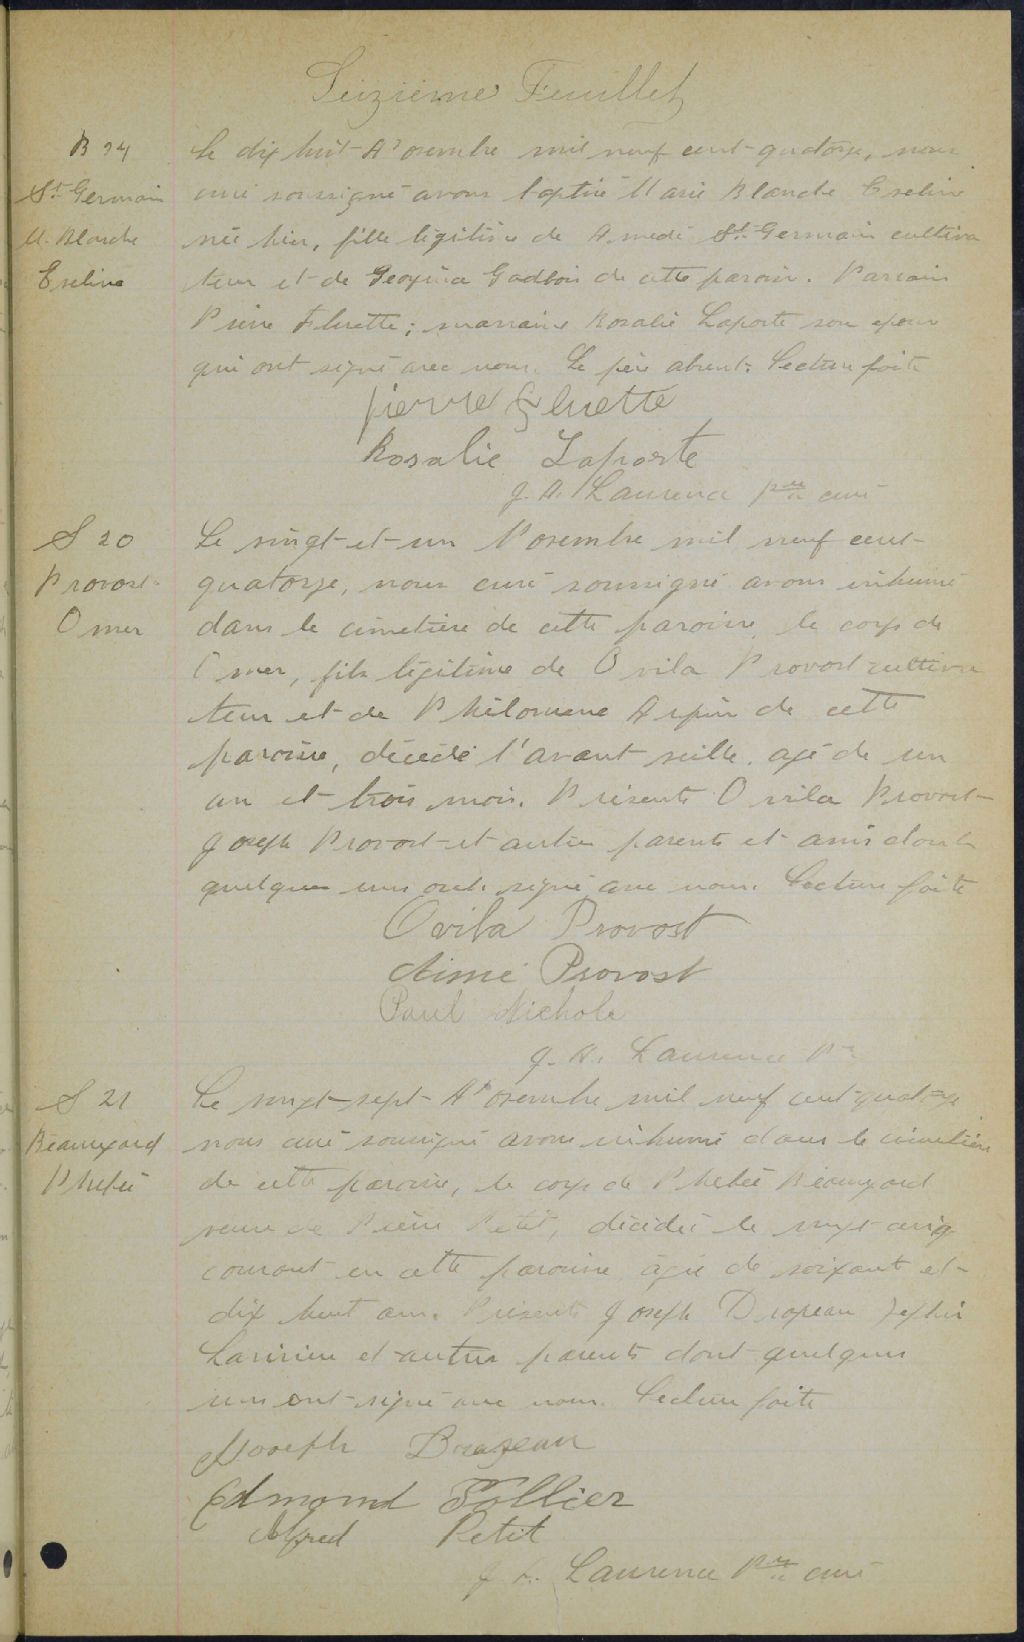 Seizième Feuillet
B 24
St Germain
M. Blanche
Eveline
Le dix huit Novembre mil neuf cent quatorze, nous
curé soussigné avons baptisé Marie Blanche Eveline
née hier, fille légitime de Amedé St Germain cultiva
teur et de Georgina Gadbois de cette paroisse. Parrain
Pierre Fluette; marraine Rosalie Laporte son epouse
qui ont signé avec nous. Le père absent. Lecture faite
pierre Fluette
Rosalie Laporte
J. A. Laurence ptre curé
S 20
Provost
Omer
Le vingt et un Novembre mil neuf cent
quatorze, nous curé soussigné avons inhumé
dans le cimetière de cette paroisse le corps de
Omer, fils légitime de Ovila Provost cultiva
teur et de Philomene Arpin de cette
paroisse, décédé l'avant veille, agé de un
an et trois mois. Présents Ovila Provost
Joseph Provost et autres parents et amis dont
quelques uns ont signé avec nous. Lecture faite
Ovila Provost
Aimé Provost
Paul Nichols
J. A. Laurence Ptre
S 21
Beauregard
Phebée
Le vingt-sept Novembre mil neuf cent quatorze
nous curé soussigné avons inhumé dans le cimetière
de cette paroisse, le corps de Phebée Beauregard
veuve de Pierre Petit, décédée le vingt cinq
courant en cette paroisse agée de soixante et
dix huit ans. Présents Joseph Drapeau Zephir
Larivière et autres parents dont quelques
uns ont signé avec nous. Lecture faite
Joseph Drapeau
Edmond Tellier
Alfred Petit
J. A. Laurence Ptre curé